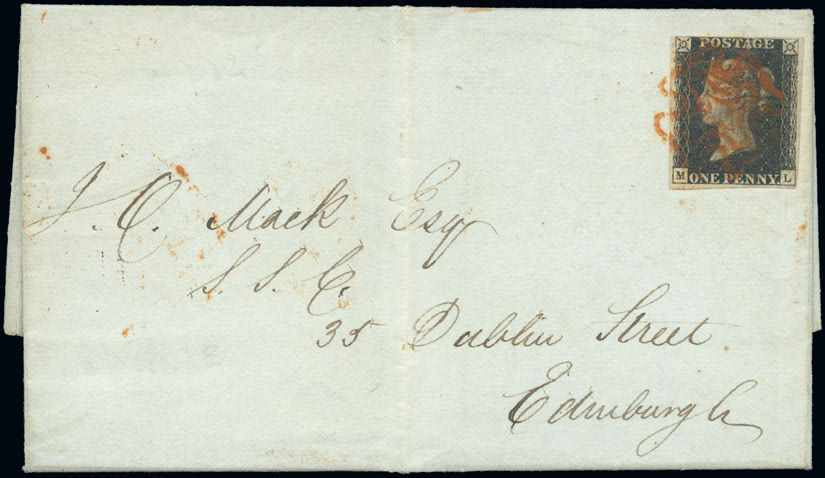 POSTAGE
M L
ONE PENNY
J. C. Mack Esqr
S. S. C.
35 Dublin Street
Edinburgh